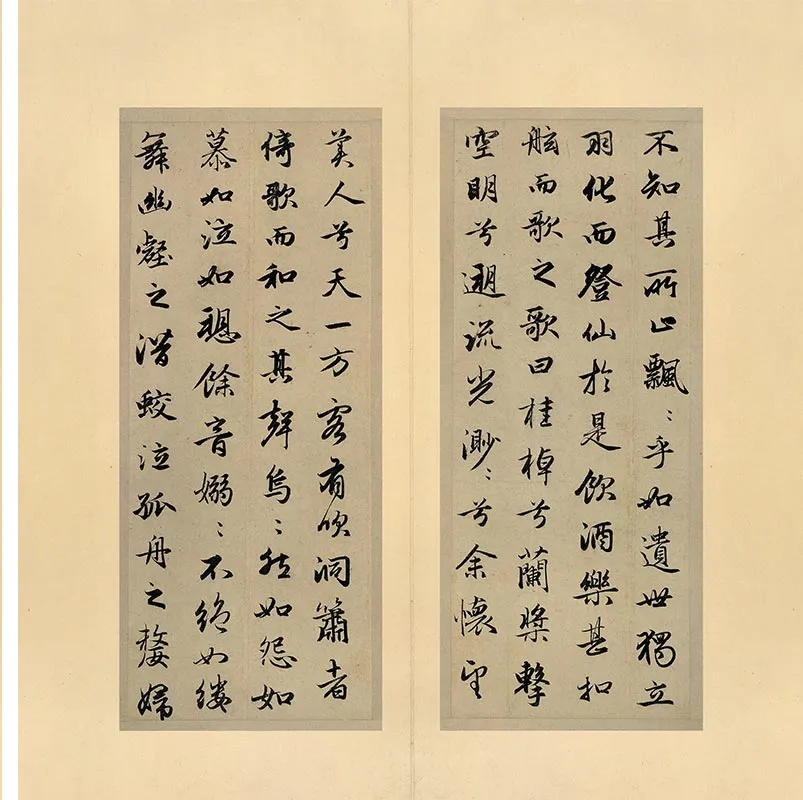 不知其所止飄〻乎如遺世獨立
羽化而登仙於是飲酒樂甚扣
舷而歌之歌曰桂棹兮蘭槳擊
空明兮遡流光渺〻兮余懷望
美人兮天一方客有吹洞簫者
倚歌而和之其聲烏〻然如怨如
慕如泣如䜣餘音嫋〻不絕如縷
舞幽壑之潛蛟泣孤舟之嫠婦